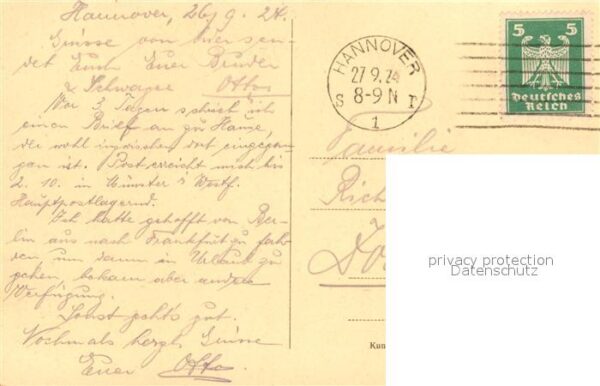 Hannover, 26. 9. 24.
Grüsse von hier sen-
det Euch Euer Bruder
& Schwager Otto
Vor 3 Tagen schrieb ich
einen Brief an zu Hause,
der wohl inzwischen dort eingegan-
gen ist. Post erreicht mich bis
2. 10. in Münster i/ Westf.
Hauptpostlagernd.
Ich hatte gehofft von Ber-
lin aus nach Frankfurt zu fah-
ren, um dann in Urlaub zu
gehen, bekam aber andere
Verfügung.
Sonst geht's gut.
Nochmals herzl. Grüsse
Euer Otto.
HANNOVER
27.9.24
8-9 N
S
1
5 5
Deutsches
Reich
Familie
Rich
privacy protection
Datenschutz
Kun